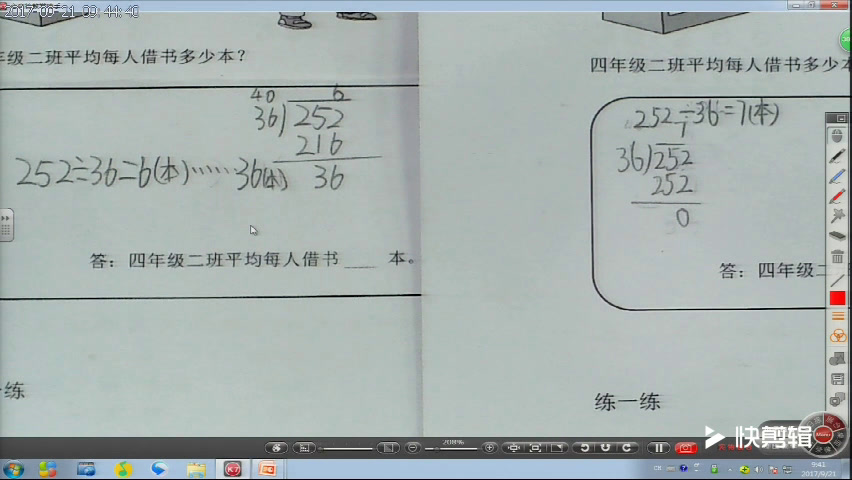 2017-09-21 09:44:40
年级二班平均每人借书多少本？
40 6
36)252
216
36
252÷36=6(本)……36(本)
答：四年级二班平均每人借书____本。
练
四年级二班平均每人借书多少本
252÷36=7(本)
7
36)252
252
0
答：四年级二
练一练
快剪辑
208%
9:41
2017/9/21